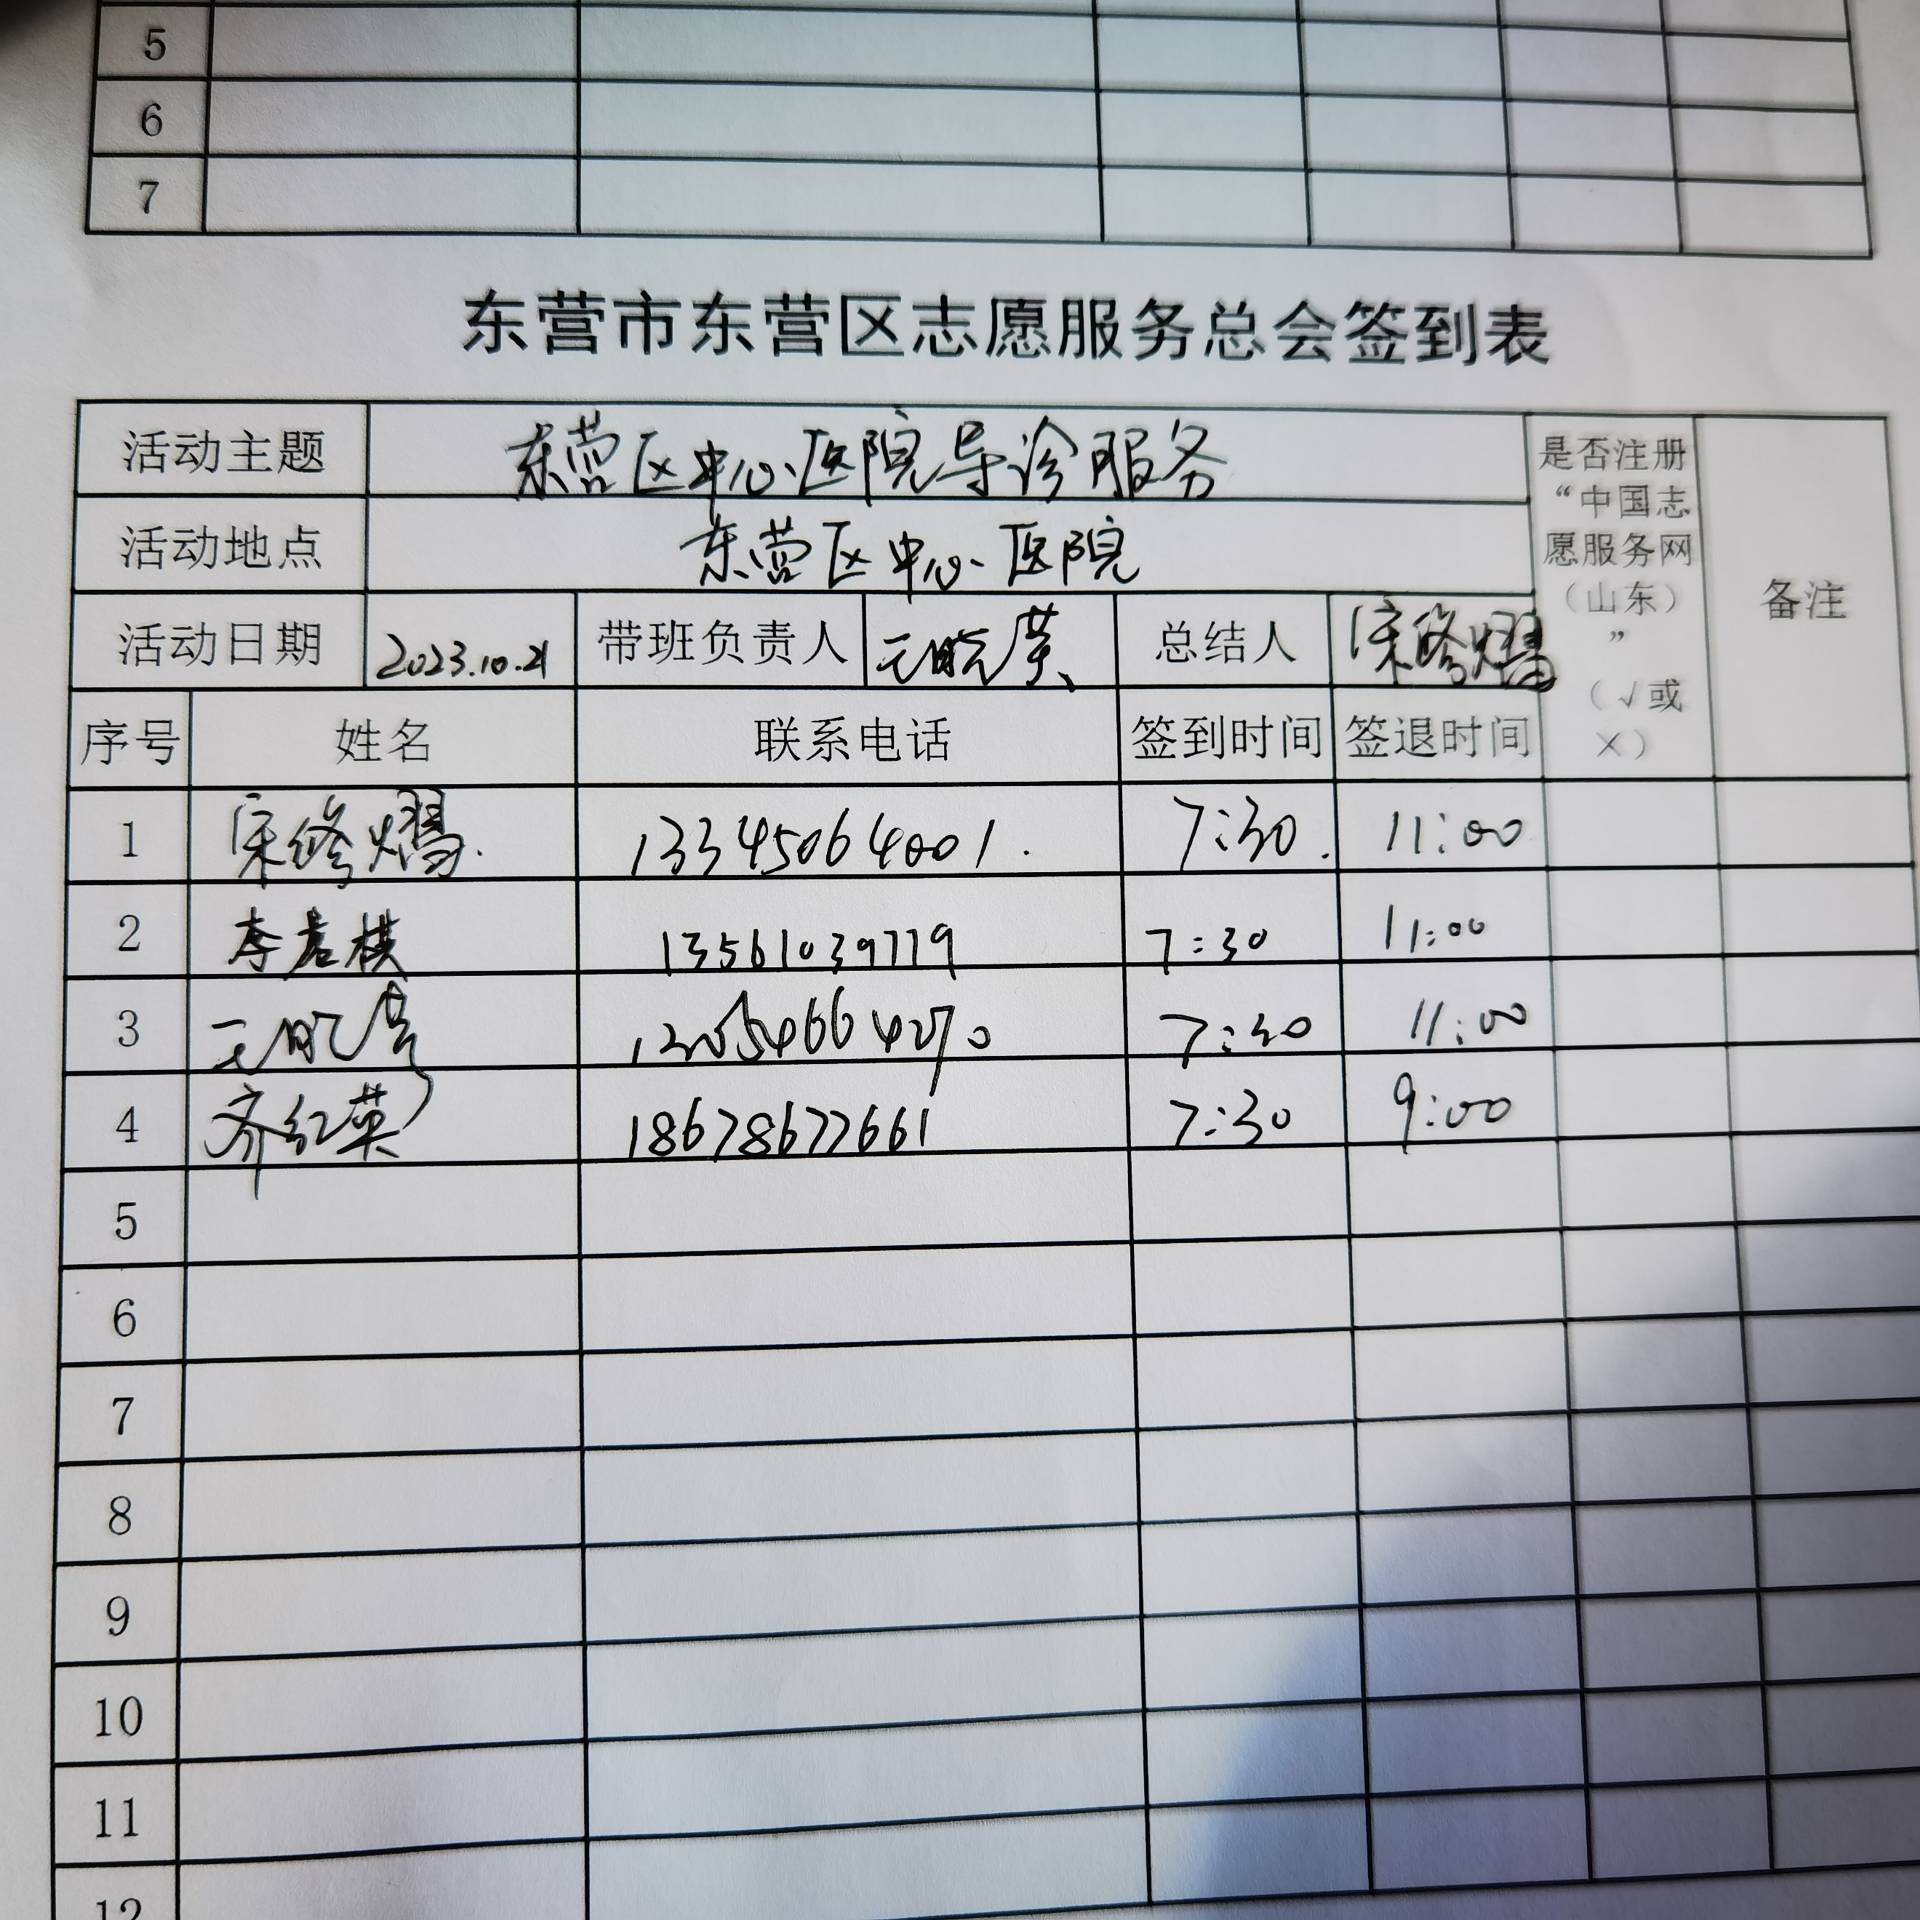 5
6
7
东营市东营区志愿服务总会签到表
活动主题 东营区中心医院导诊服务
是否注册
“中国志
愿服务网
（山东）
”
（√或
×）
备注
活动地点 东营区中心医院
活动日期 2023.10.21 带班负责人 王晓英 总结人 宋修熠
序号 姓名 联系电话 签到时间 签退时间
1 宋修熠. 13345064001. 7:30. 11:00
2 李君棋 13561039779 7:30 11:00
3 7:30 11:00
4 齐红英 18678677661 7:30 9:00
5
6
7
8
9
10
11
12